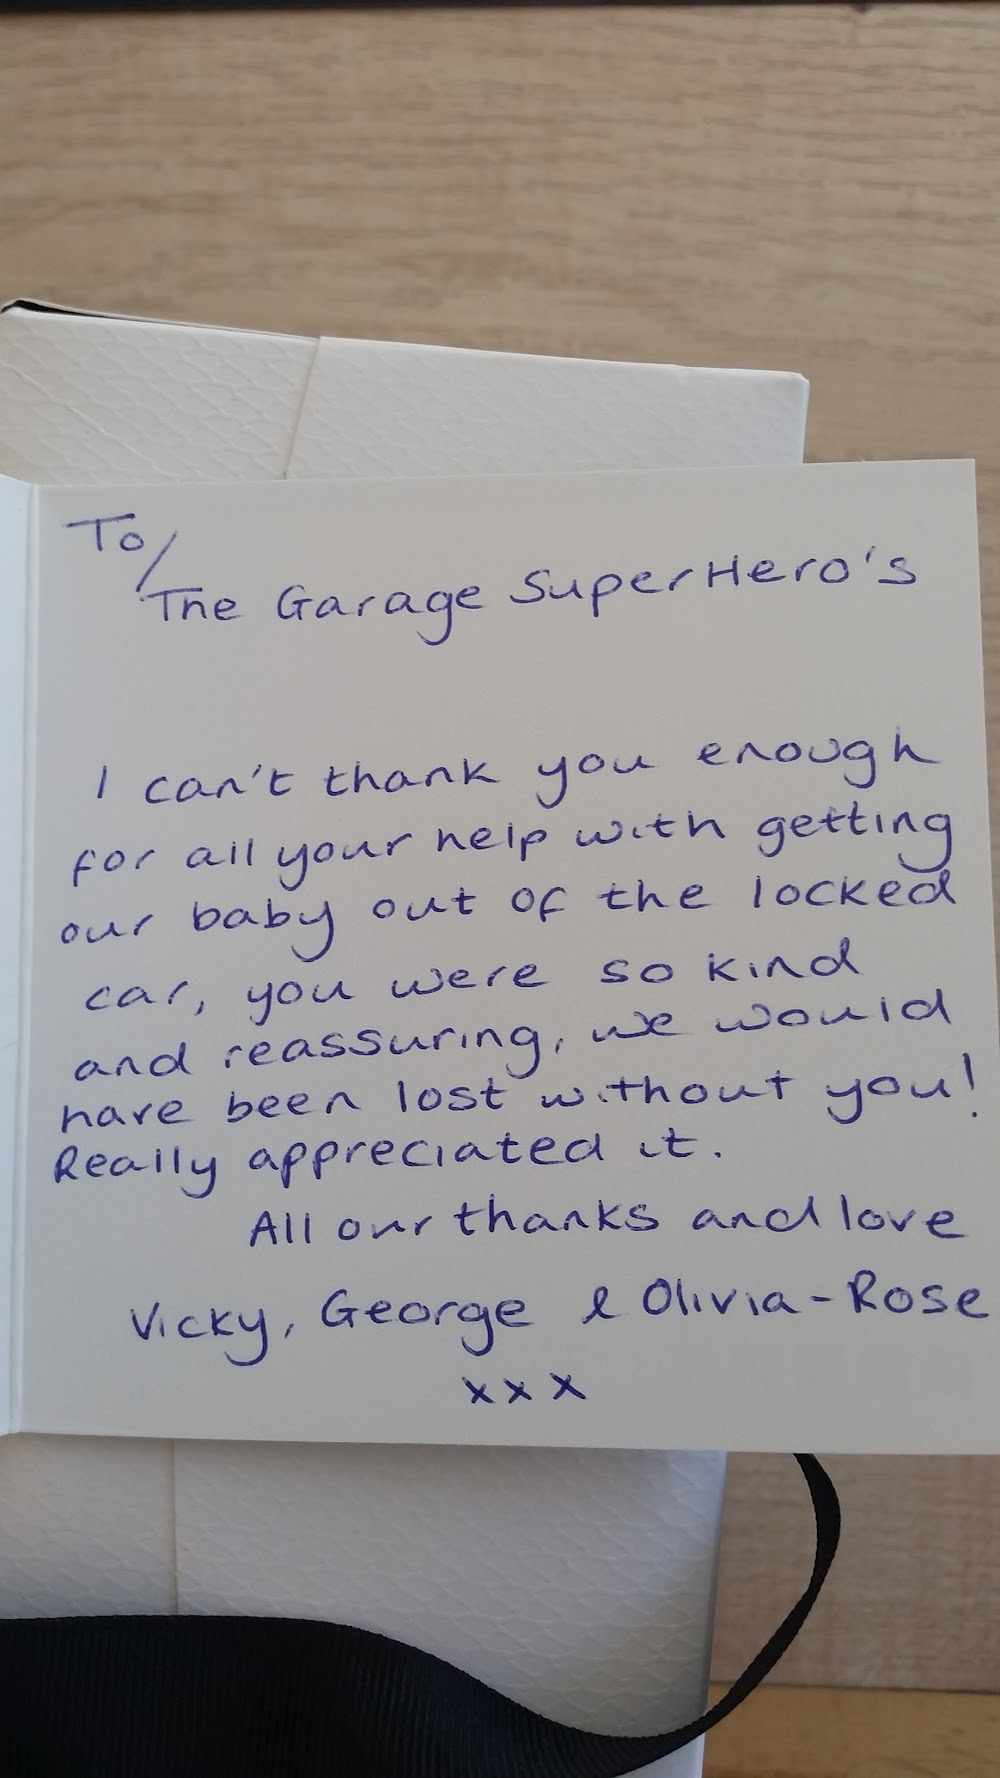 To/
The Garage SuperHero's
I can't thank you enough
for all your help with getting
our baby out of the locked
car, you were so kind
and reassuring, we would
have been lost without you!
Really appreciated it.
All our thanks and love
Vicky, George & Olivia-Rose
xxx